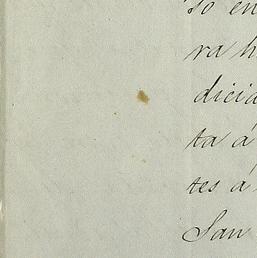 to en
ra h
dicia
ta á
tes á
San